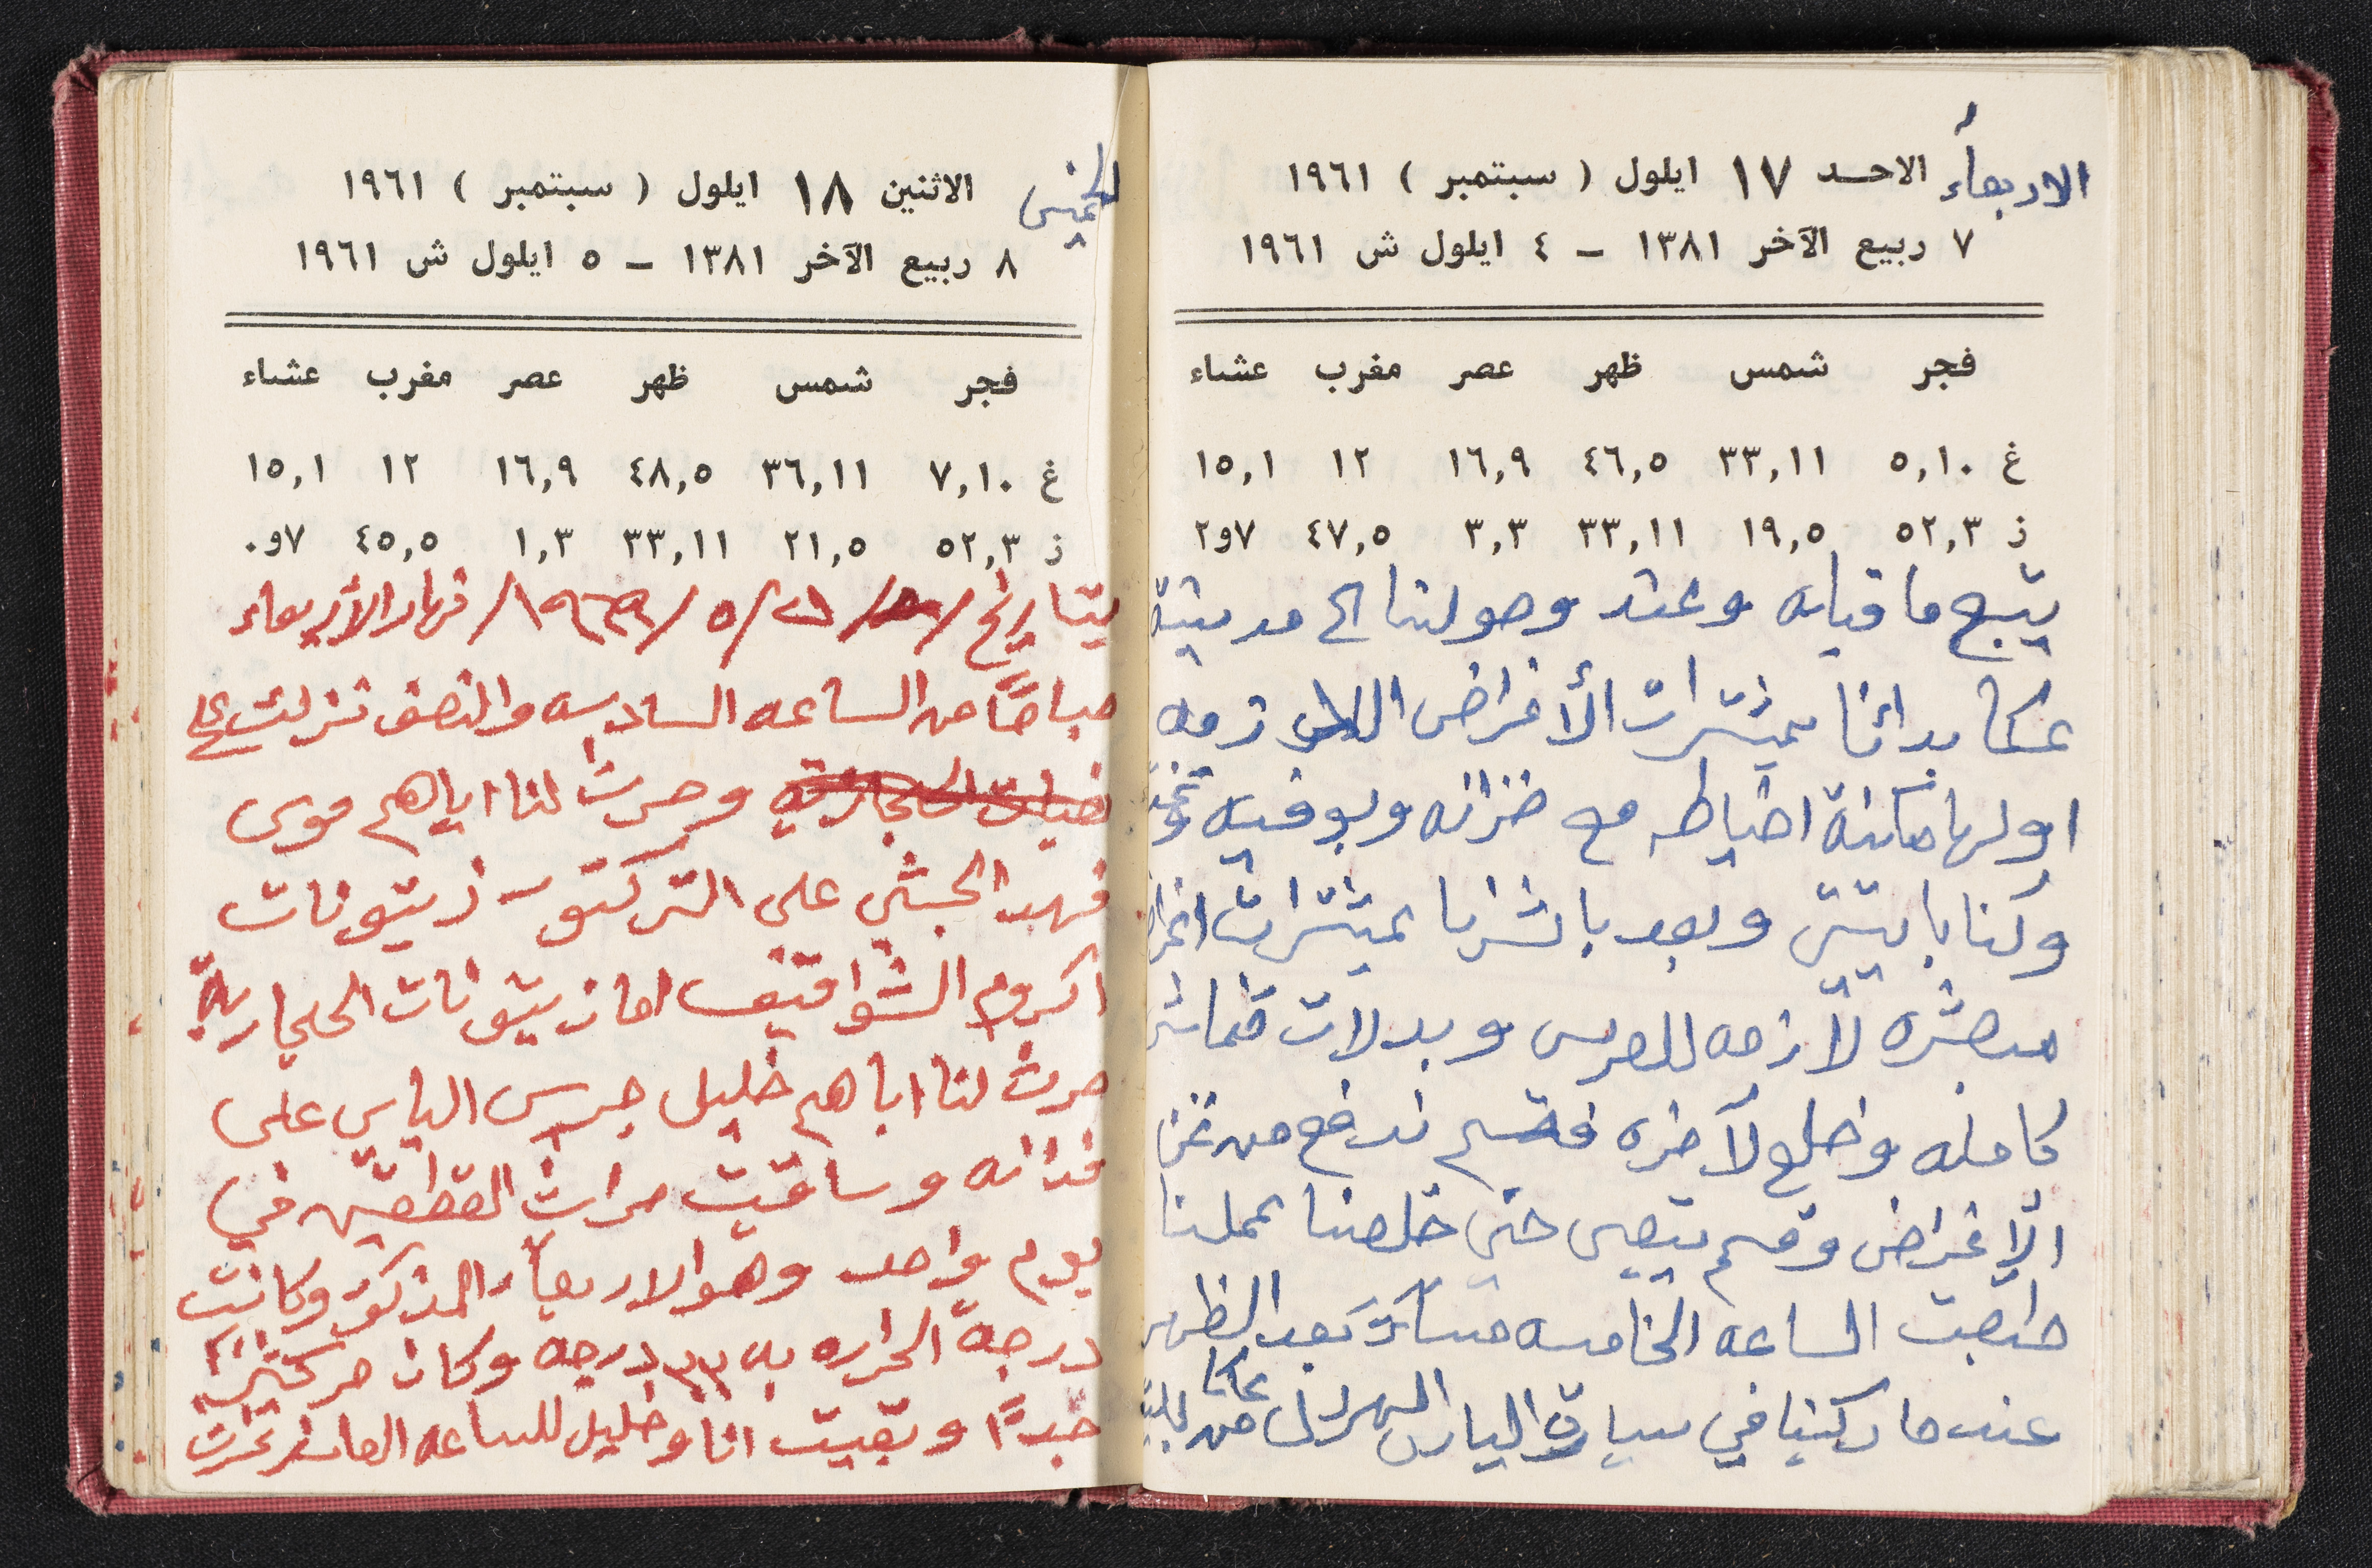 الاربعاء الاحد ١٧ ايلول ( سبتمبر ) ١٩٦١
٧ ربيع الآخر ١٣٨١ – ٤ ايلول ش ١٩٦١
فجر شمس ظهر عصر مغرب عشاء
غ ٥,١٠ ٣٣,١١ ٤٦,٥ ١٦,٩ ١٢ ١٥,١
ز ٥٢,٣ ١٩,٥ ٣٣,١١ ٣,٣ ٤٧,٥ ٧و٢
يتبع ما قبله وعند وصولنا الى مدينة
عكا بدائنا بمشترات الأغراض اللازمه
اولها مكنة اخياطه مع خزانه وبوفيه
وكنابايتين وبعد باشرنا بمشترات اغراض
مبعثره لازمه للعرس وبدلات قماش
كامله وخلع لآخره فقسم ندفع من ثمن
الإغراض وقسم يتبعى حتى خلصنا عملنا
اصبحت الساعه الخامسه مساءً بعد الظهر
عندما ركبنا في سيارة اليارن من عكا
الخميس الاثنين ١٨ ايلول ( سبتمبر ) ١٩٦١
٨ ربيع الآخر ١٣٨١ – ٥ ايلول ش ١٩٦١
فجر شمس ظهر عصر مغرب عشاء
غ ٧,١٠ ٣٦,١١ ٤٨,٥ ١٦,٩ ١٢ ١٥,١
ز ٥٢,٣ ٢١,٥ ٣٣,١١ ١,٣ ٤٥,٥ ٧و٠
بتاريخ /٢١/٥/١٩٦٩/ نهار الأربعاء
صباحًا من الساعه السادسه والنصف نزلت على
وحرث لنا اياهم موسى
فهد الجشي على التركتور زيتونات
اكروم الشواقيف اما زيتونات الحجارية
حرث لنا اياهم خليل جريس الياس على
فدانه وساقيت حراث القطعتين في
يوم واحد وهو الاربعاء المذكور وكانت
درجة الحراره ٣٣ درجه وكان حر كثير
جدًا وبقيت انا وخليل للساعه العاشر